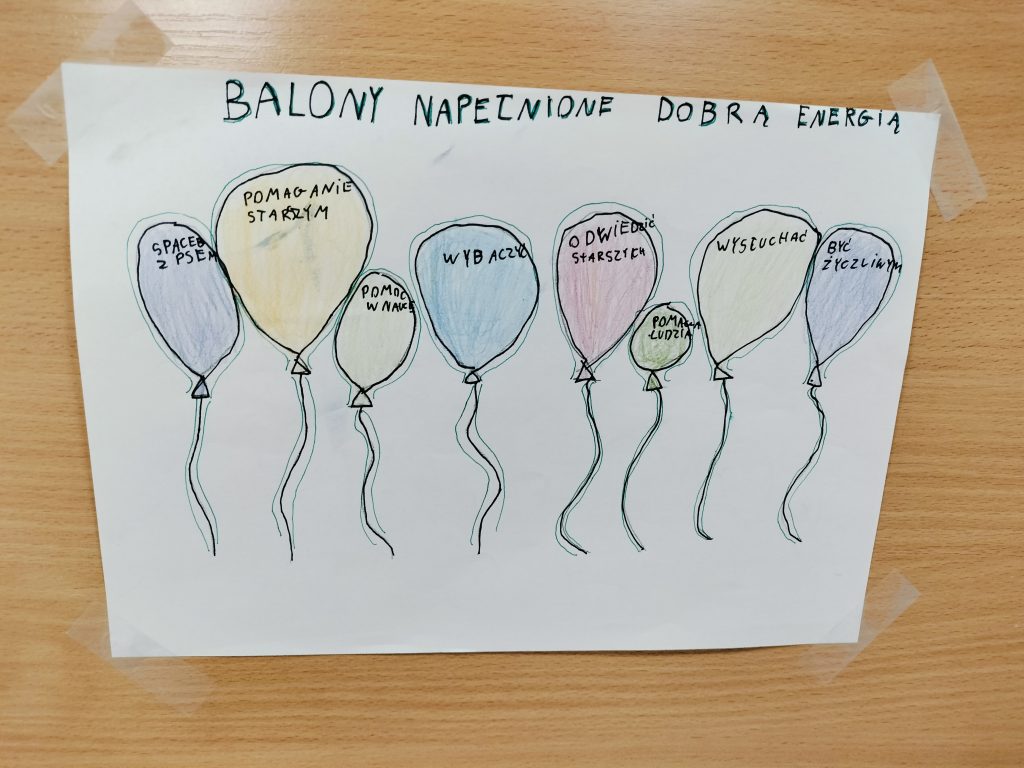 BALONY NAPEŁNIONE DOBRĄ ENERGIĄ
SPACER
Z PSEM
POMAGANIE
STARSZYM
POMOC
W NAUCE
WYBACZYĆ
ODWIEDZIĆ
STARSZYCH
POMAGAĆ
LUDZIĄ
WYSŁUCHAĆ
BYĆ
ŻYCZLIWYM